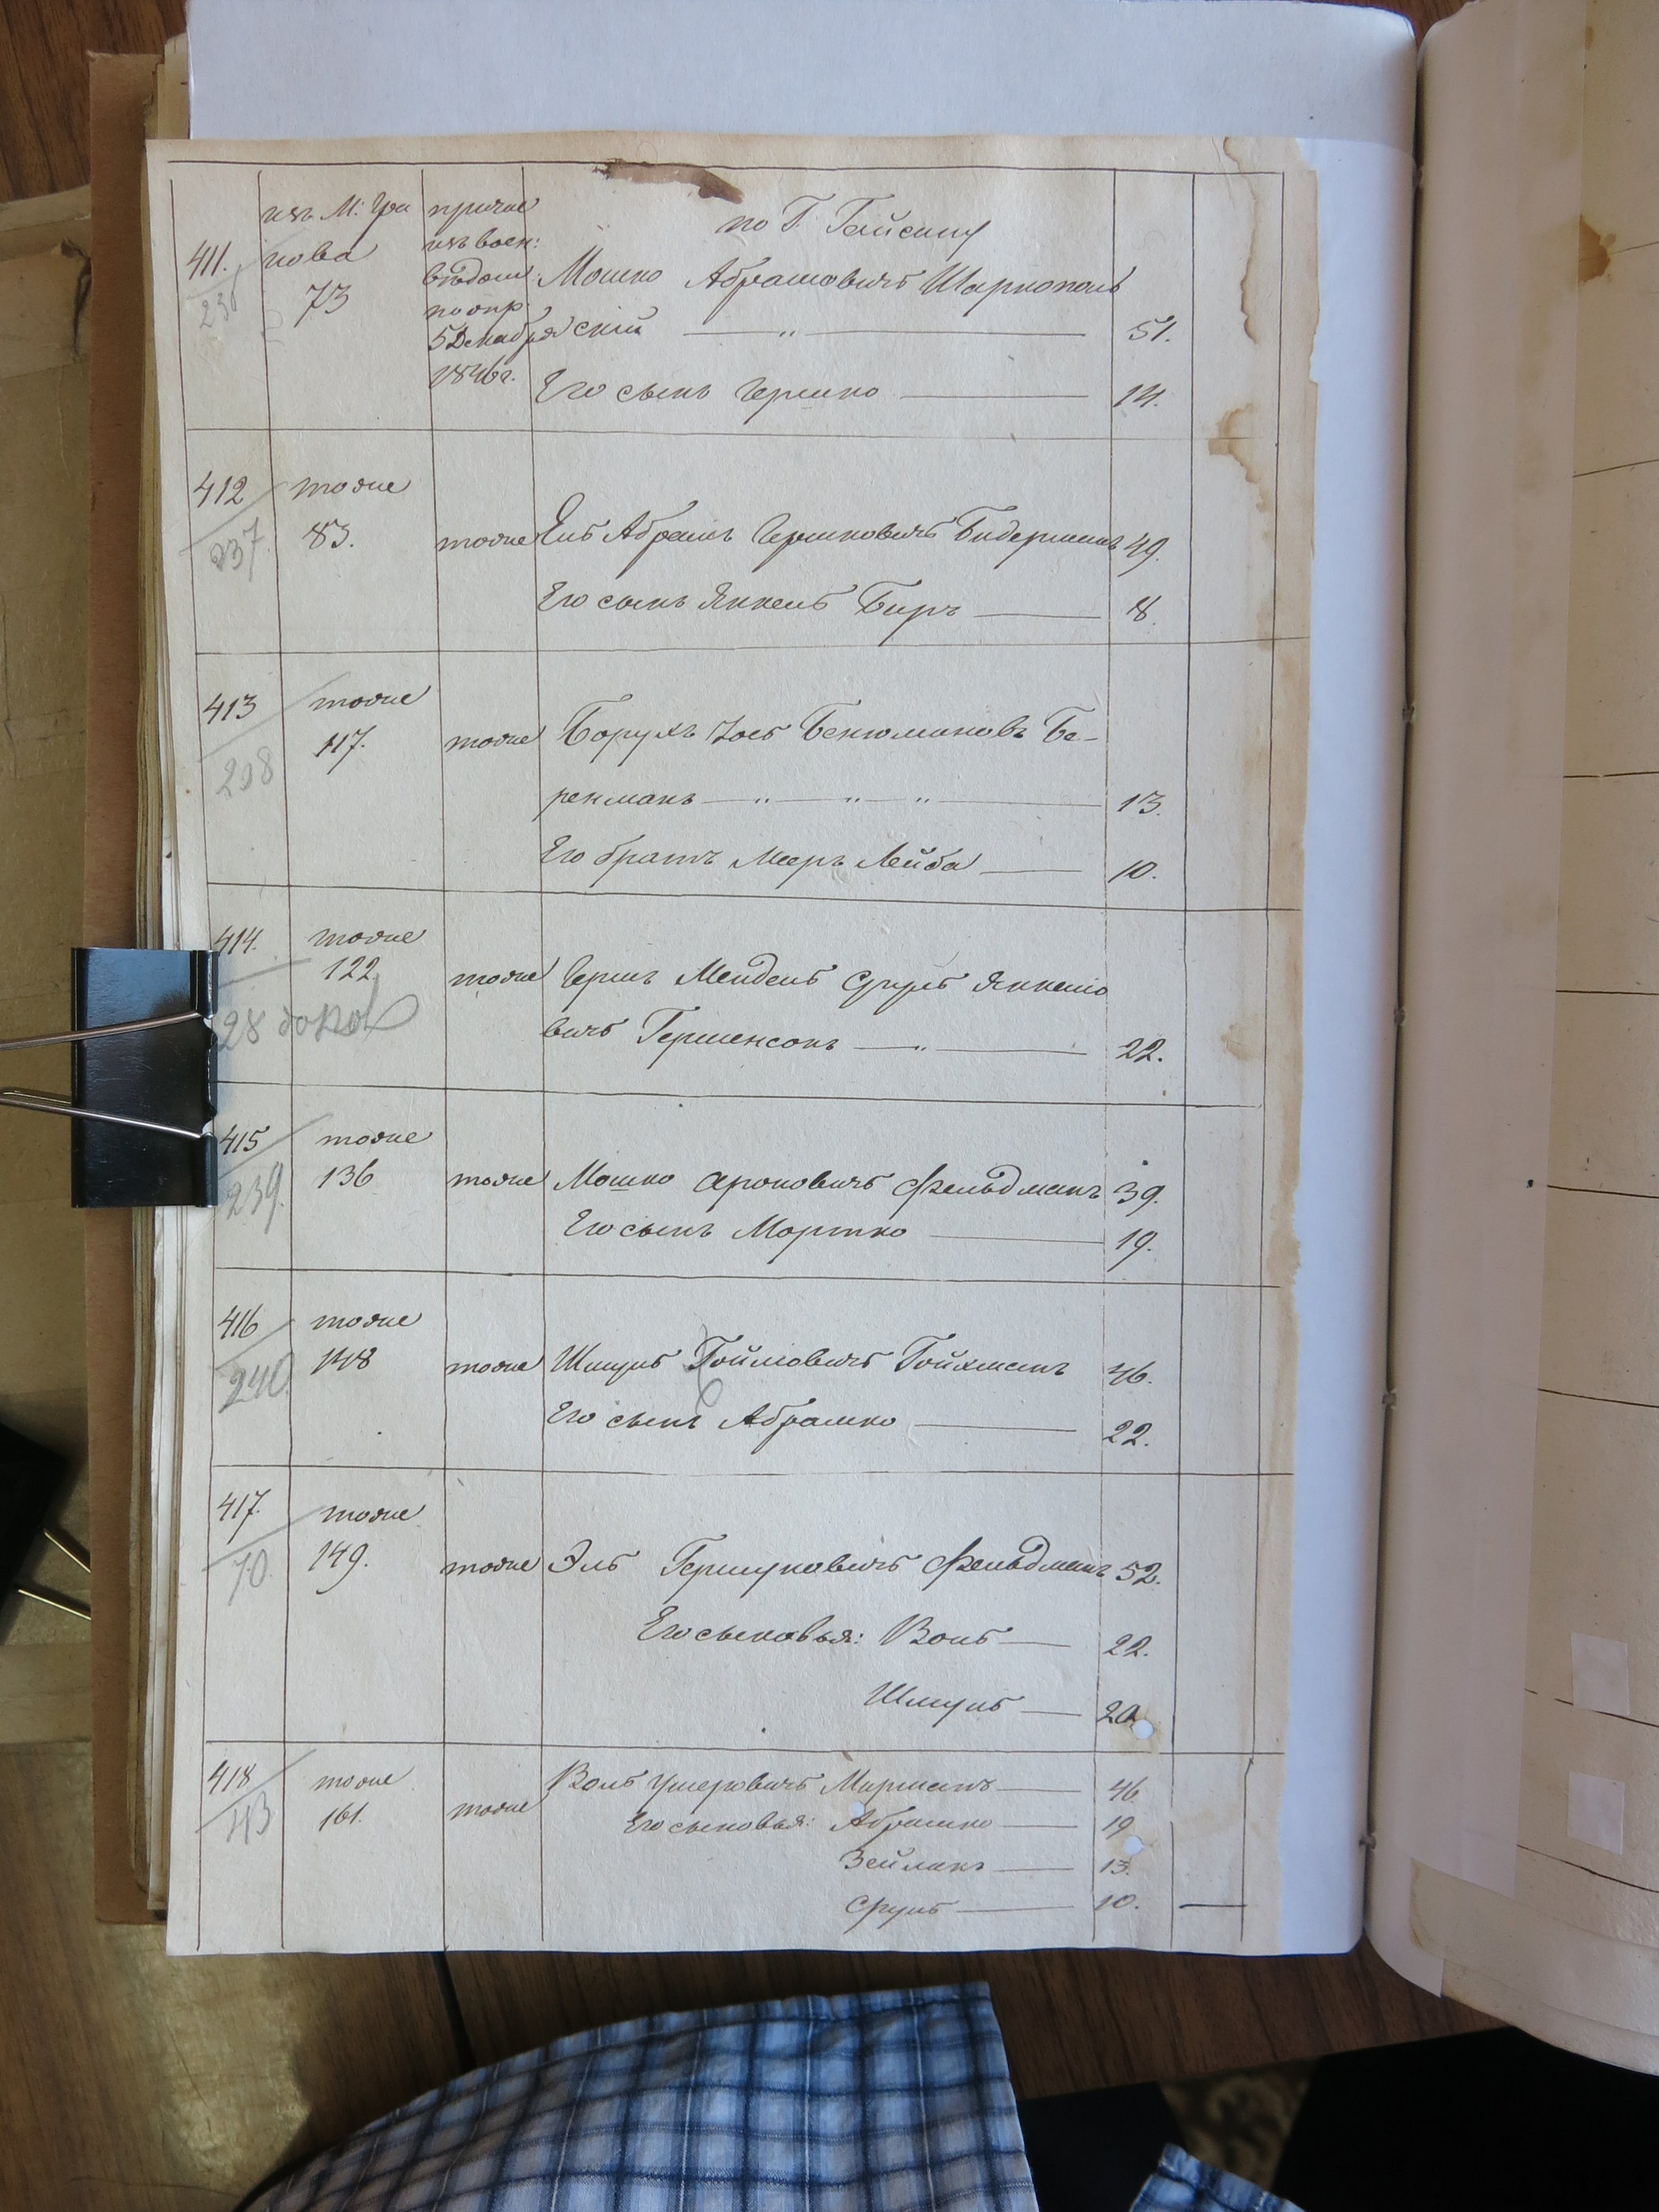 по Г. Гайсину
411. изъ М: Гра
нова
73
236
причис
изъ воен:
ведом:
по опр
5 Декабря
1846 г.
Мошко Абрамовичъ Шаркополь
скій — " — 51.
Его сынъ Гершко — 14.
412 тоже
237. 83. тоже Эль Абрамъ Гершковичъ Бидерманъ 49.
Его сынъ Янкель Беръ — 8.
413 тоже
208 117. тоже Борухъ Іось Бенюминовъ Бе-
ренманъ — " — " — " — 13.
Его братъ Мееръ Лейба — 10.
414. тоже
122. тоже Гершъ Мендель Сруль Янкело
28
вичъ Гершенсонъ — " — 22.
415 тоже
239. 136 тоже Мошко Ароновичъ Фельдманъ 39.
Его сынъ Мортко — 19.
416 тоже
240. 148 тоже Шмуль Гойховичъ Гойхманъ 46.
Его сынъ Абрамко — 22.
417. тоже
70. 149. тоже Эль Гершковичъ Фельдманъ 52.
Его сыновья: Воль — 22.
Шмуль — 20.
418 тоже
43 161. тоже Воль Ушеровичъ Мирманъ — 46
Его сыновья: Абрамко — 19
Зейманъ — 13.
Сруль — 10.